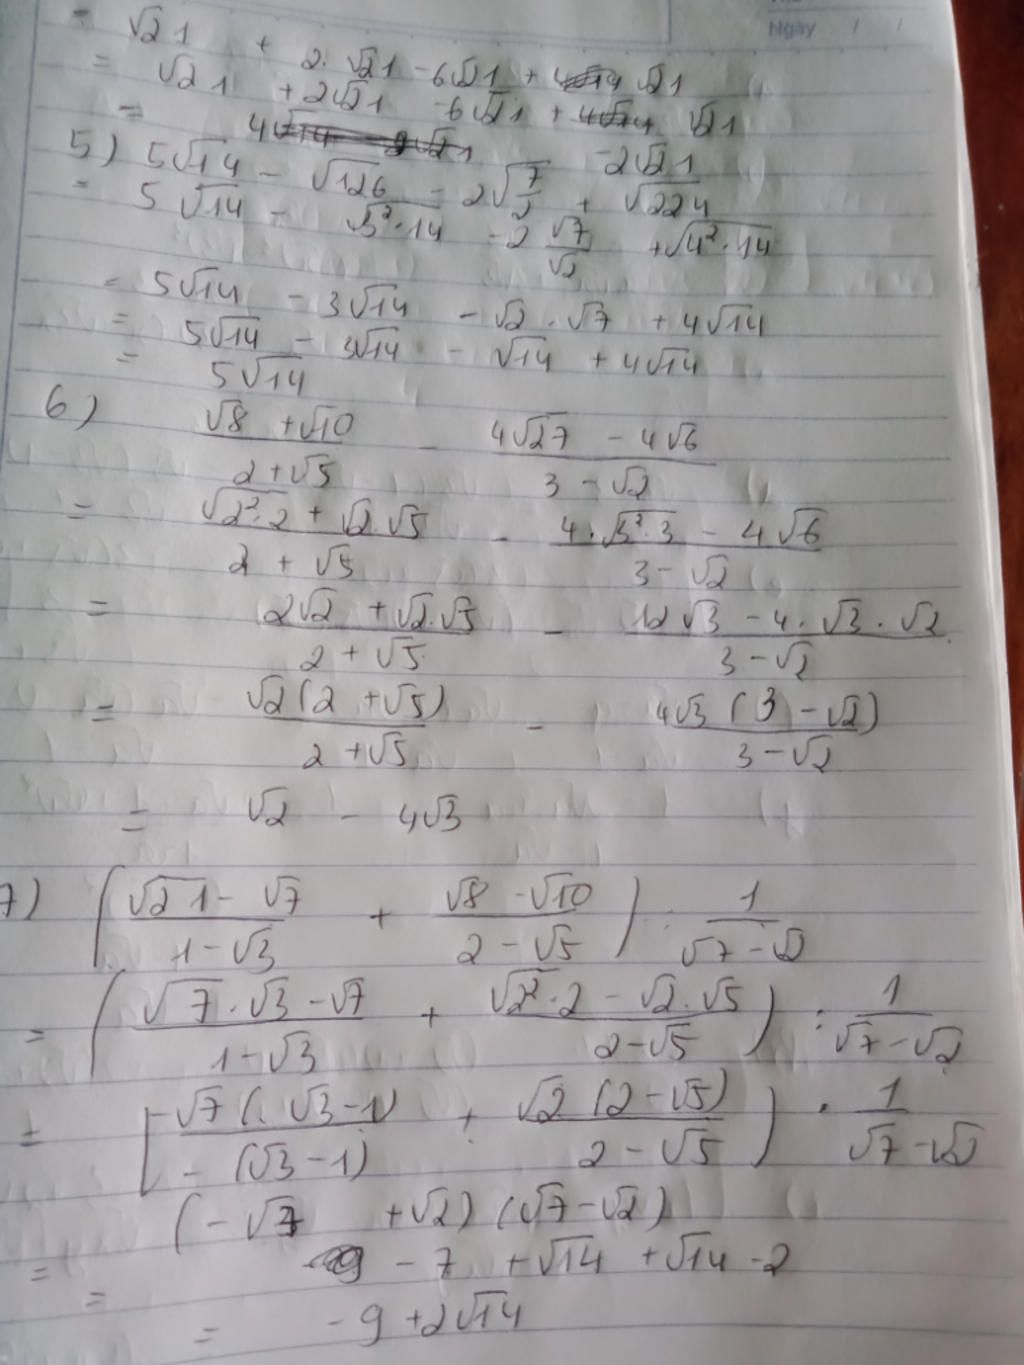 Ngày / /
= √21 + 2·√21 - 6√21 + √21
= √21 + 2√21 - 6√21 + √21
= -2√21
5) 5√14 - √126 - 2√(7/2) + √224
= 5√14 - √(3²·14) - 2 √7/√2 + √(4²·14)
= 5√14 - 3√14 - √2 . √7 + 4√14
= 5√14 - 3√14 - √14 + 4√14
= 5√14
6) (√8 + √10)/(2 + √5) - (4√27 - 4√6)/(3 - √2)
= (√(2²·2) + √2.√5)/(2 + √5) - (4.√(3²·3) - 4√6)/(3 - √2)
= (2√2 + √2.√5)/(2 + √5) - (12√3 - 4.√3.√2)/(3 - √2)
= √2(2 + √5)/(2 + √5) - 4√3(3 - √2)/(3 - √2)
= √2 - 4√3
7) ((√21 - √7)/(1 - √3) + (√8 - √10)/(2 - √5)) : 1/(√7 - √2)
= ((√7.√3 - √7)/(1 - √3) + (√(2²·2) - √2.√5)/(2 - √5)) : 1/(√7 - √2)
= [√7(√3 - 1)/-(√3 - 1) + √2(2 - √5)/(2 - √5)) : 1/(√7 - √2)
(-√7 + √2)(√7 - √2)
= -7 + √14 + √14 - 2
=
= -9 + 2√14